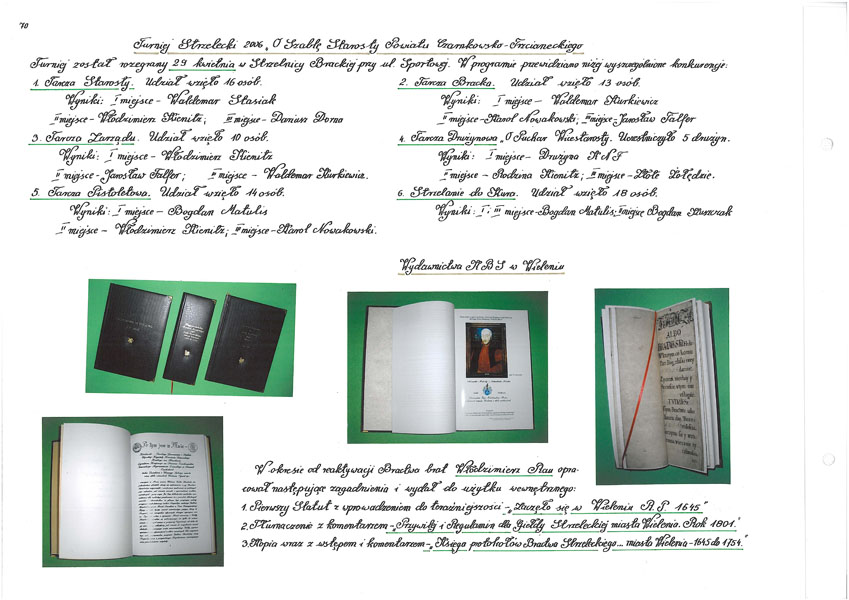 70
Turniej Strzelecki 2006 „O Szablę Starosty Powiatu Czarnkowsko-Trzcianeckiego
Turniej został rozegrany 29 kwietnia w Strzelnicy Brackiej przy ul. Sportowej. W programie przewidziano niżej wyszczególnione konkurencje:
1. Tarcza Starosty. Udział wzięło 16 osób.
Wyniki: I miejsce - Waldemar Stasiak
II miejsce - Włodzimierz Kienitz; III miejsce - Dariusz Dorna
3. Tarcza Zarządu. Udział wzięło 10 osób.
Wyniki: I miejsce - Włodzimierz Kienitz
II miejsce - Jarosław Falfer; III miejsce - Waldemar Kurkiewicz.
5. Tarcza Pistoletowa. Udział wzięło 14 osób.
Wyniki: I miejsce - Bogdan Matulis
II miejsce - Włodzimierz Kienitz; III miejsce - Karol Nowakowski.
2. Tarcza Bracka. Udział wzięło 13 osób.
Wyniki: I miejsce - Waldemar Kurkiewicz
II miejsce - Karol Nowakowski; III miejsce - Jarosław Falfer
4. Tarcza Drużynowa „O Puchar Wicestarosty. Uczestniczyło 5 drużyn.
Wyniki: I miejsce - Drużyna
II miejsce - Rodzina Kienitz; III miejsce - Złote Żołędzie.
6. Strzelanie do Kura. Udział wzięło 18 osób.
Wyniki: I i III miejsce - Bogdan Matulis; II miejsce Bogdan Kuszczak
Wydawnictwa KBS w Wieleniu
ALBO
W okresie od reaktywacji Bractwa brat Włodzimierz opra-
cował następujące zagadnienia i wydał do użytku wewnętrznego:
1. Pierwszy Statut z wprowadzeniem do teraźniejszości - „Zaczęło się w Wieleniu R.P. 1645"
2. Tłumaczenie z komentarzem - „Przywilej i Regulamin dla Gildy Strzeleckiej miasta Wielenia. Rok 1801."
3. Kopia wraz z wstępem i komentarzem - „Księga protokołów Bractwa Strzeleckiego... miasta Wielenia - 1645 do 1754."